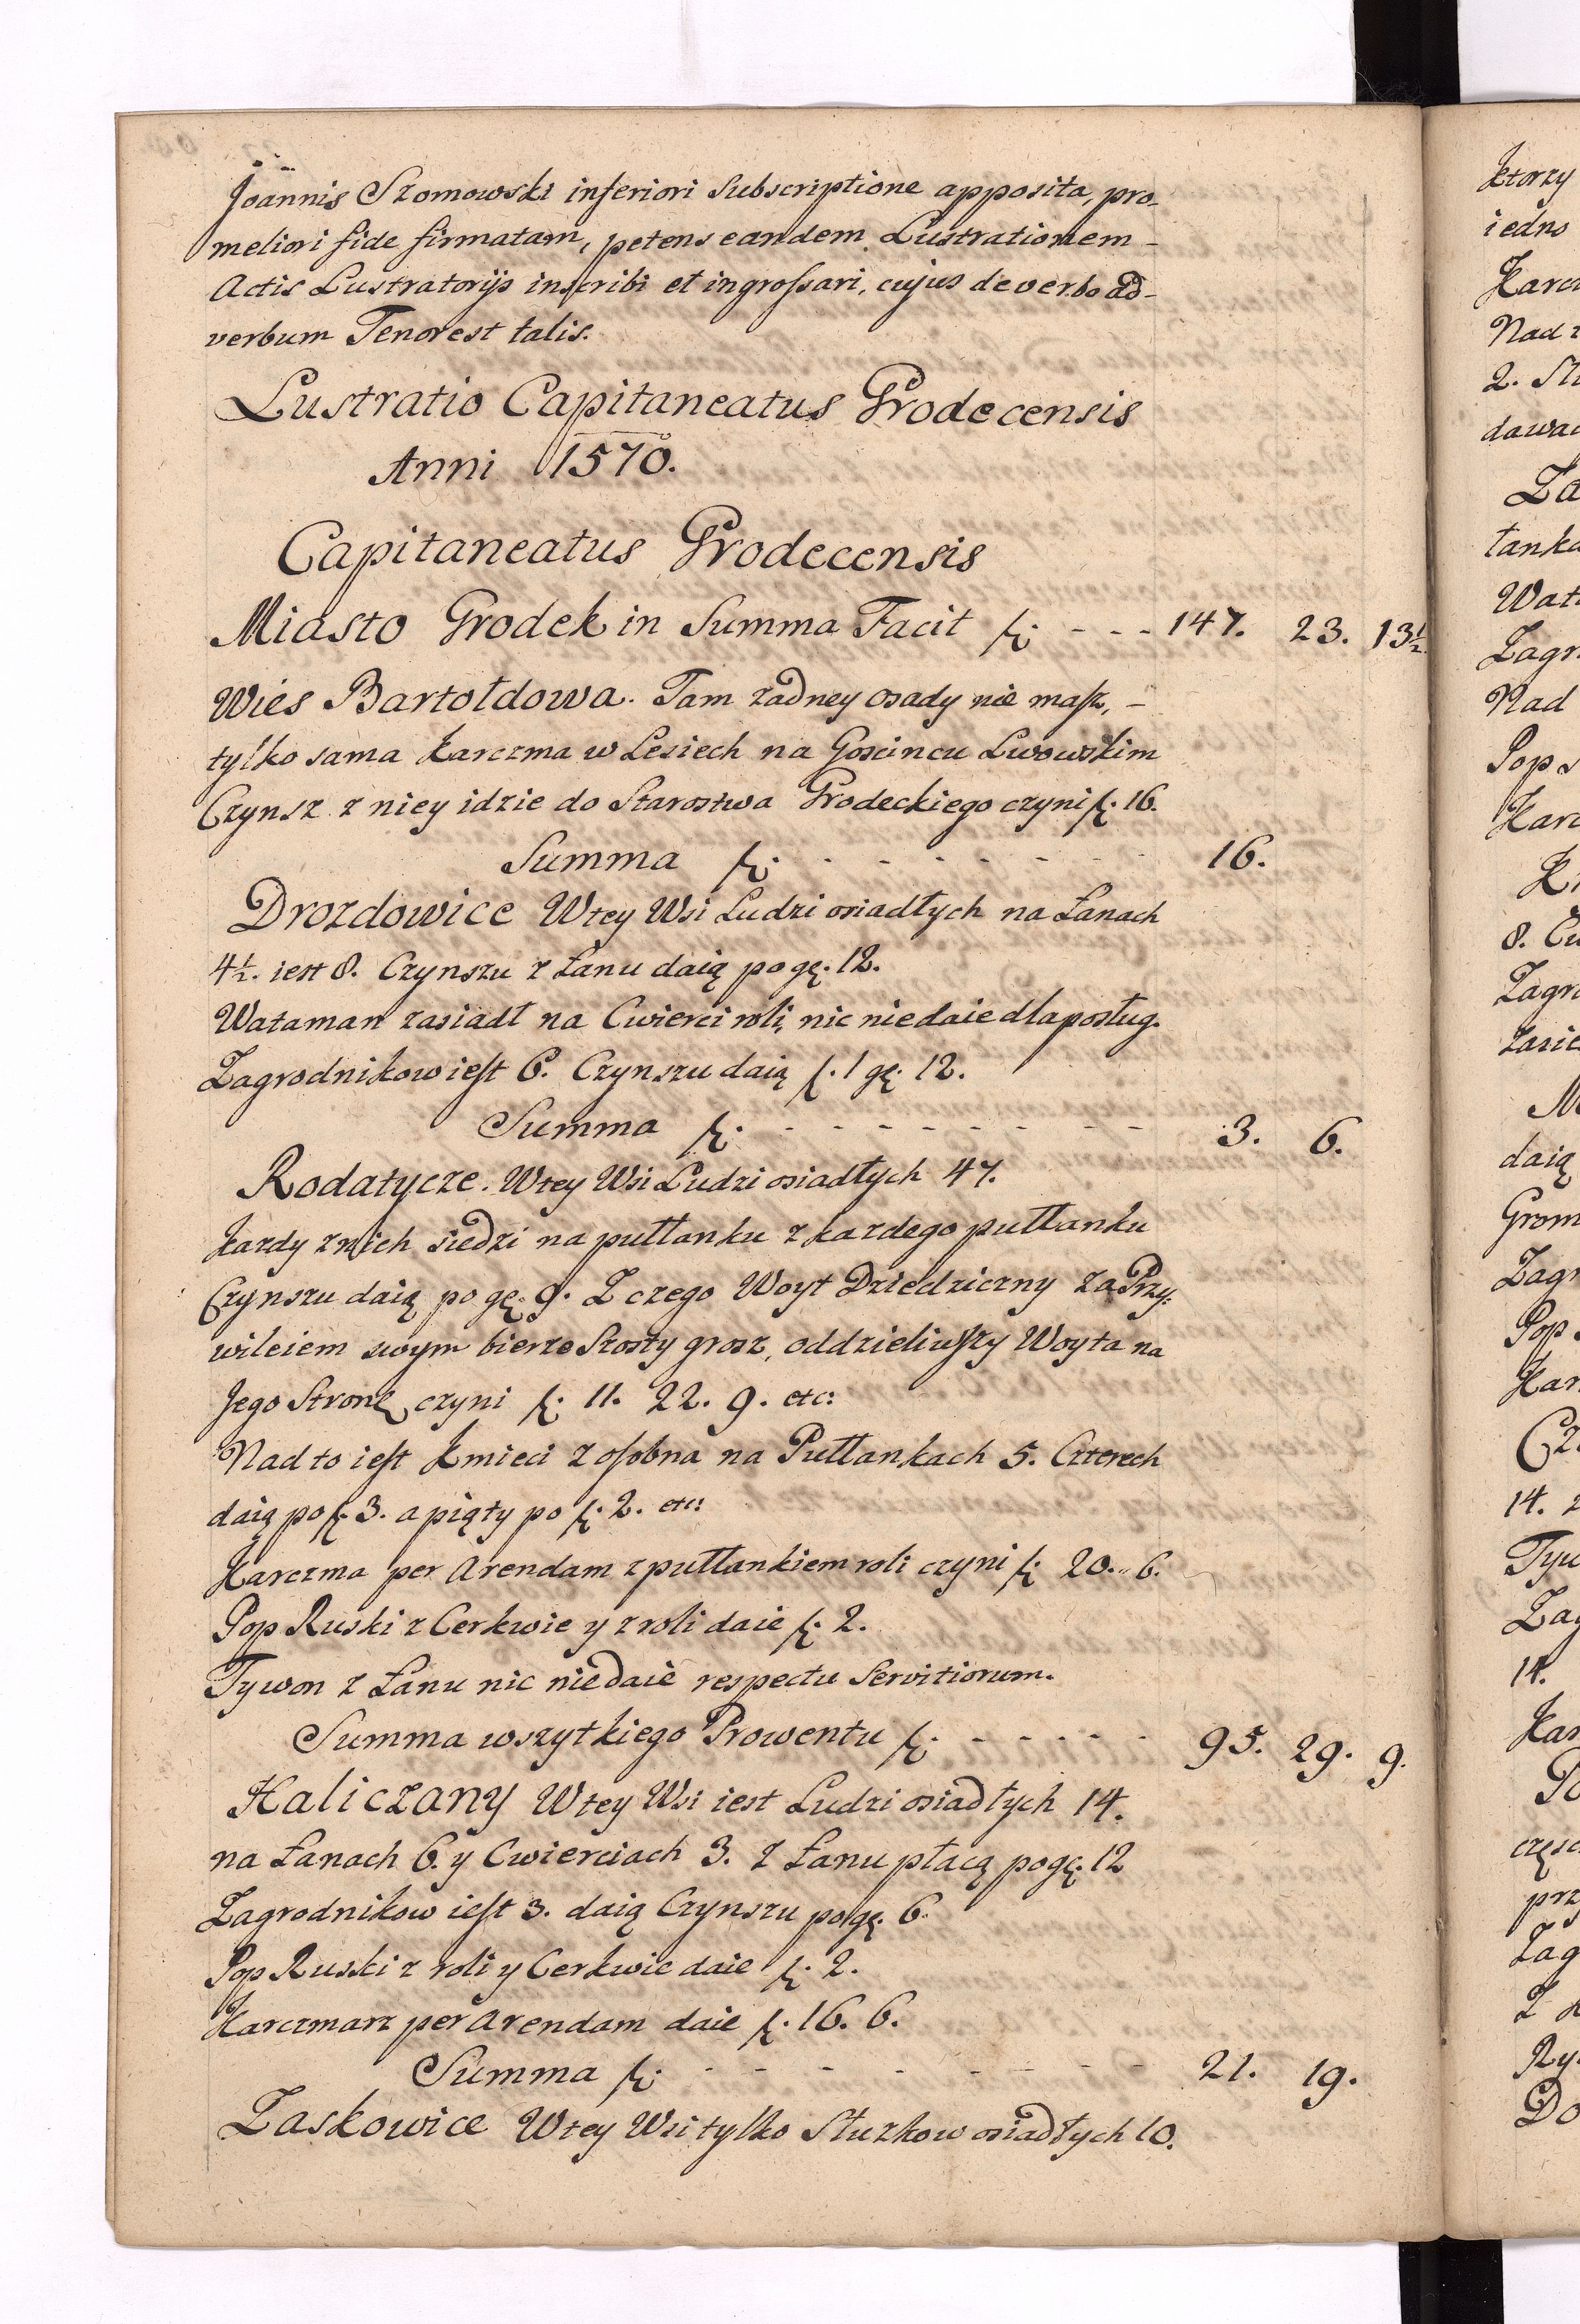 Joannis Szomowski inferiori Subscriptione apposita, pro-
meliori fide firmatam, petens eandem Lustrationem -
Actis Lustratorijs inscribi et ingrossari, cujus de verbo ad-
verbum Tenor est talis.
Lustratio Capitaneatus Grodecensis
Anni 1570.
Capitaneatus Grodecensis
Miasto Grodek in Summa Facit f: - - - 147. 23. 13½
Wies Bartołdowa. Tam zadney osady nie masz, -
tylko sama karczma w Lesiech na Goscincu Lwowskim
Czynsz z niey idzie do Starostwa Grodeckiego czyni f. 16.
Summa f: - - - - - - - 16.
Drozdowice W tey Wsi Ludzi osiadłych na Łanach
4½. iest 8. Czynszu z Łanu daią po gę. 12.
Wataman zasiadł na Cwierci roli, nic nie daie dla posług.
Zagrodnikow iest 6. Czynszu daią f. 1 gę. 12.
Summa f: - - - - - - - - - 3. 6.
Rodatycze. W tey Wsi Ludzi osiadłych 47.
kazdy z nich siedzi na pułłanku z kazdego pułłanku
Czynszu daią po gę. 9. Z czego Woyt Dziedziczny za Przy:
wileiem swym bierze Szosty grosz, oddzieliwszy Woyta na
Jego Stronę czyni f: 11. 22. 9. etc:
Nad to iest kmieci z osobna na Pułłankach 5. Czterech
daią po f. 3. a piąty po f. 2. etc:
Karczma per Arendam z pułłankiem roli czyni f: 20. 6.
Pop Ruski z Cerkwie y z roli daie f: 2.
Tywon z Łanu nic nie daie respectu Servitiorum.
Summa wszytkiego Prowentu f: - - - - - 95. 29. 9.
Haliczany W tey Wsi iest Ludzi osiadłych 14.
na Łanach 6. y Cwierciach 3. z Łanu płacą po gę. 12
Zagrodnikow iest 3. daią Czynszu po gę. 6.
Pop Ruski z roli y Cerkwie daie f: 2.
Karczmarz per Arendam daie f. 16. 6.
Summa f: - - - - - - - - 21. 19.
Laskowice W tey Wsi tylko Służkow osiadłych 10.
ktorzy
iedno
Nad
2.
8.
daią
14.
14.